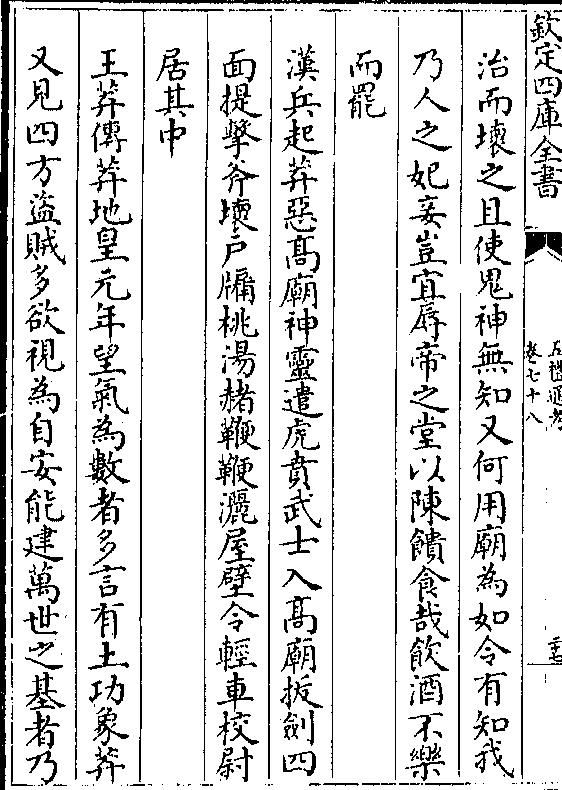 欽定四庫全書
五禮通考
卷七十八
治而壞之且使鬼神無知又何用廟為如令有知我
乃人之妃妾豈宜辱帝之堂以陳饋食哉飲酒不樂
而罷
漢兵起莽惡高廟神靈遣虎賁武士入高廟拔劍四
面提擊斧壞戶牖桃湯赭鞭鞭灑屋壁令輕車校尉
居其中
王莽傳莽地皇元年望氣為數者多言有土功象莽
又見四方盜賊多欲視為自安能建萬世之基者乃